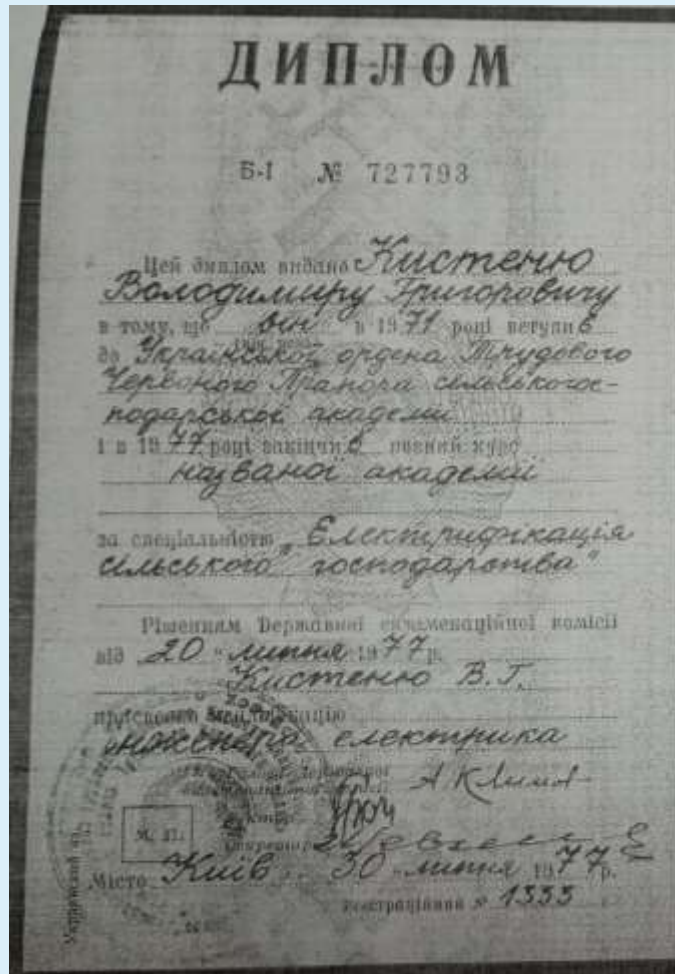 ДИПЛОМ
Б-І № 727793
Цей диплом видано Кистеню
Володимиру Григоровичу
в тому, що він в 1971 році вступив
до Української ордена Трудового
Червоного Прапора сільськогос-
подарської академії
і в 1977 році закінчив повний курс
названої академії
за спеціальністю „Електрифікація
сільського господарства"
Рішенням Державної екзаменаційної комісії
від „20" липня 1977 р.
Кистеню В. Г.
присвоєно кваліфікацію
інженера електрика
Ректор
Секретар
М. П.
Місто Київ 30 липня 1977 р.
Реєстраційний № 1333